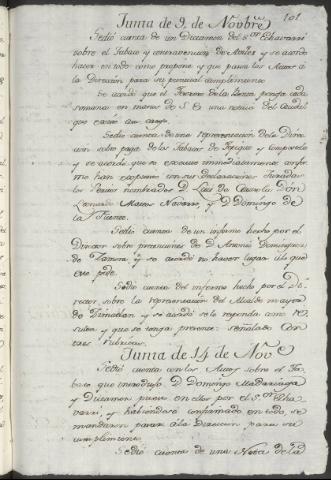 Junta de 9, de Novbre
101.
Se dió cuenta de un Dictamen del Sor Echavarri
sobre el Tabaco y contravencion de Aviles y se acordó
hacer en todo como propone y que pasen los Autos á
la Dirección para su puntual cumplimiento
Se acordó que el Thesorero de la Renta ponga cada
semana en manos de S.E. una noticia del caudal
que existe á su cargo.
Se dió cuenta de una representación de la Direc
cion sobre paga de los Tabacos de y
y se acordó que se execute inmediatamente confor
me han expuesto con sus declaraciones Juradas
los Peritos nombrados D. Luis de Don
Navarro, y D. Domingo de
la Fuente.
Se dió cuenta de un informe hecho por el
Director sobre pretenciones de D. Antonio Dominguez
de Zamora y se acordó no hacer lugar á lo que
este pide.
Se dió cuenta del informe hecho por el Di
rector, sobre la representación del Alcalde mayor
de y se acordó se le responda como re
sulta y que se tenga presente: señalado con
tres rubricas.
Junta de 14 de Nove
Se dió cuenta con los Autos sobre el Ta
baco que introdujo D. Domingo Madariaga
y Dictamen puesto en ellos por el Sor Echa
varri; y habiendose conformado en todo, se
mandaron pasar á la Dirección para su
cumplimiento.
Se dió cuenta de una Nota de la